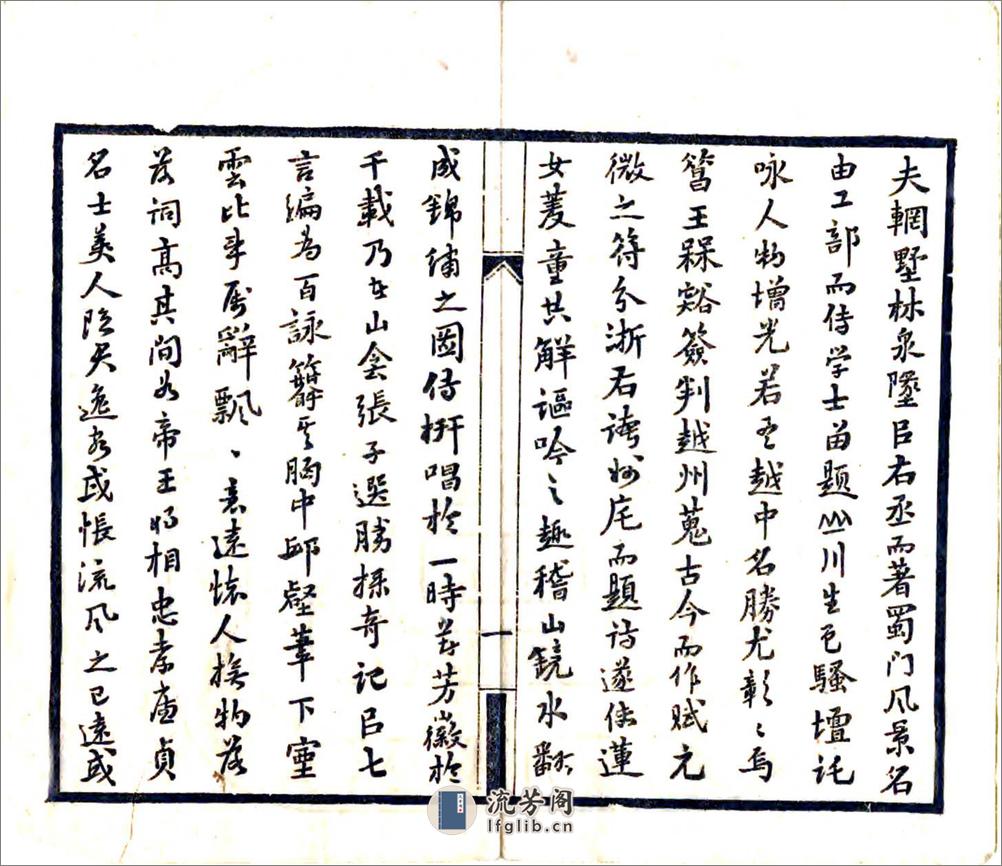 夫輞墅林泉墜㠯右丞而著蜀门风景名
由工部而传学士留题山川生色騷壇託
咏人物增光若吾越中名勝尤彰〻焉
簹王槑谿簽判越州蒐古今而作賦元
微之符分浙右誇州宅而題诗遂使蓮
女菱童共觧謳吟之趣稽山鏡水翻
成錦繡之圖倡於一時芳徽於
千載乃山侌張子選勝探奇记㠯七
言编為百詠簳其胸中邱壑筆下雲
雲比事属辭飄〻意遠懷人撫物落
落词高其间如帝王将相忠孝廉貞
名士美人隐君逸客或悵流风之已遠或
一
流芳阁
lfglib.cn